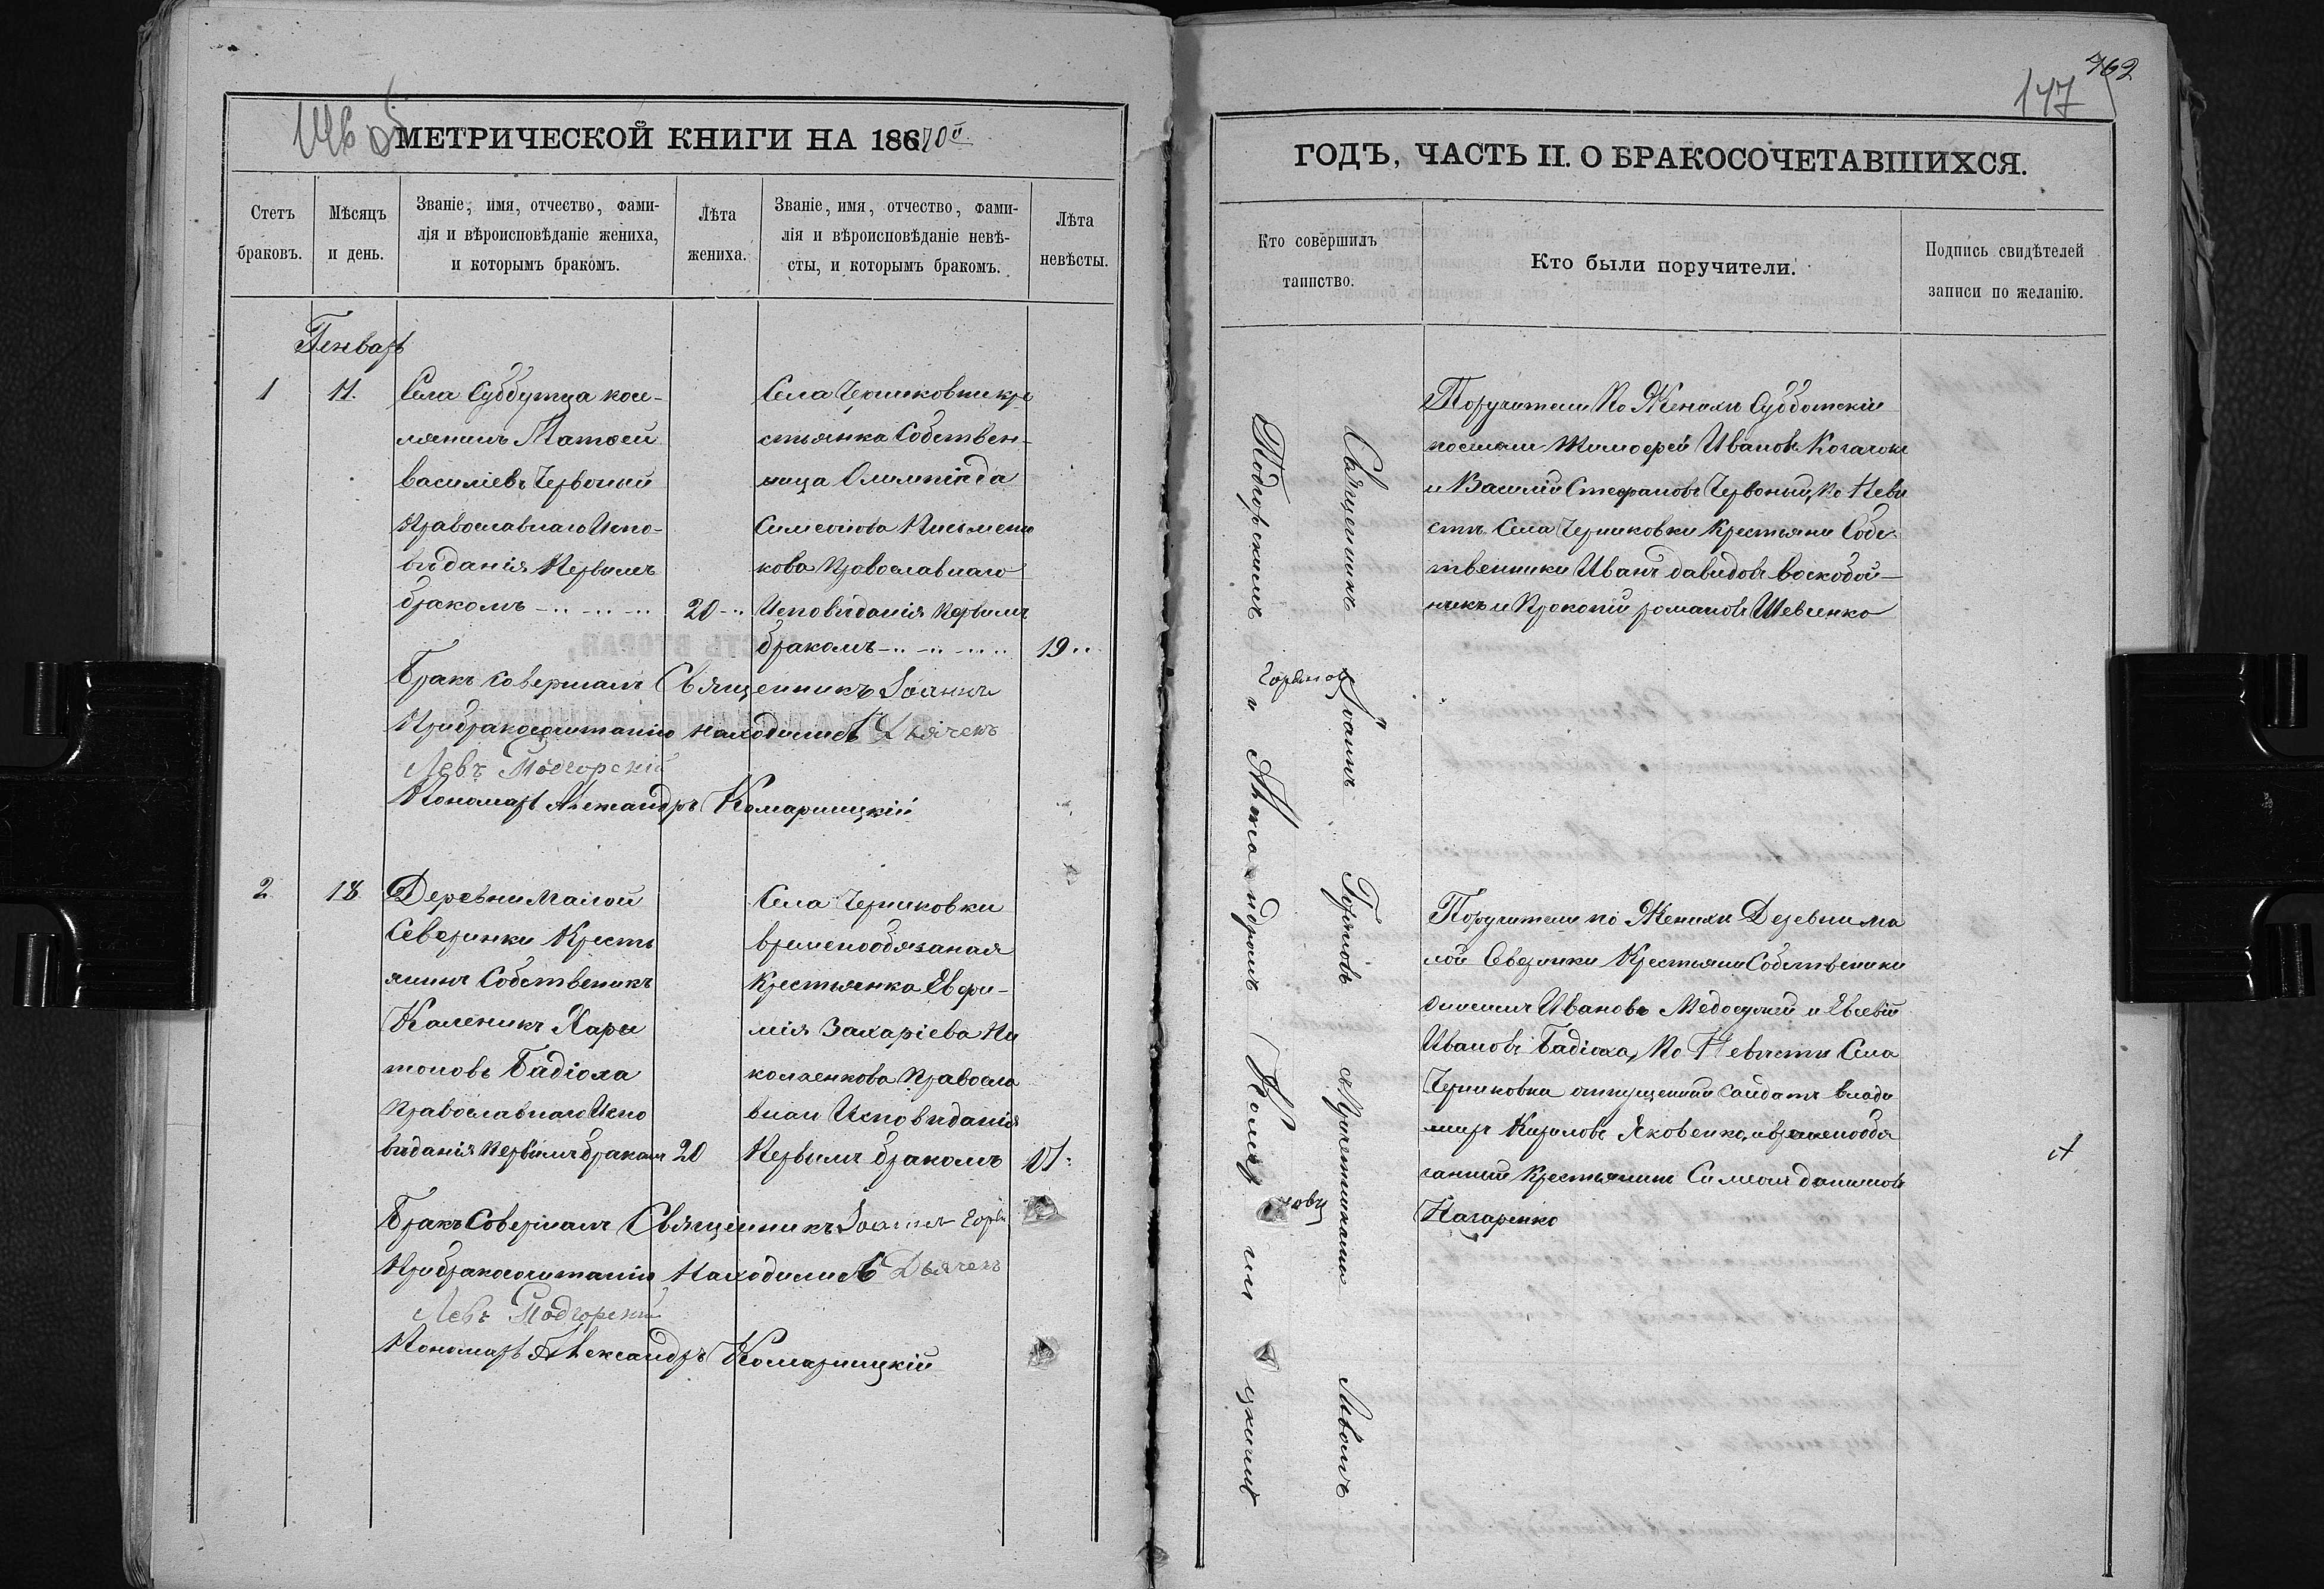 МЕТРИЧЕСКОЙ КНИГИ НА 18670й
Стетъ браковъ.
Мѣсяцъ и день.
Званіе, имя, отчество, фами-
лія и вѣроисповѣданіе жениха,
и которымъ бракомъ.
Лѣта жениха.
Званіе, имя, отчество, фами-
лія и вѣроисповѣданіе невѣ-
сты, и которымъ бракомъ.
Лѣта невѣсты.
Генварь
1
11.
Села Субботца посе-
лянинъ Матѳей
василіевъ Червоный
Православнаго Испо-
вѣданія Первымъ
бракомъ
20
Села Черниковки кре
стьянка Собствен-
ница Олимпіяда
Симеонова Письмен
кова Православнаго
Исповѣданія Первымъ
бракомъ
19
Бракъ Совершалъ Священникъ Іоаннъ
При бракосочитанію находились Дьячекъ
Левъ Подгорскій
Пономарь Александръ Комарницкій
2
18
Деревни Малой
Северинки Кресть
янинъ Собственикъ
Каленикъ Хари
тоновъ Бадіоха
Православнаго Испо
вѣданія Первымъ бракомъ 20
Села Черниковки
временообязаная
Крестьянка Евфи-
мія Захаріева Ни
колаенкова Правосла
Исповѣданія
Первымъ бракомъ
Бракъ Совершалъ Священникъ Іоаннъ
При бракосочитанію Находились Дьячекъ
Левъ Подгорскій
Пономарь Александръ Комарницкій
762
147
ГОДЪ, ЧАСТЬ II. О БРАКОСОЧЕТАВШИХСЯ.
Кто совершилъ
таинство.
Кто были поручители.
Подпись свидѣтелей
записи по желанію.
Священникъ Іоаннъ Львомъ
Подгорскимъ и Александромъ
Поручители По Женихѣ Субботскіе
Тимофей Ивановъ
и Василій Стефановъ Червоный, По Неве
стѣ Села Черниковки Крестьяне Собс
твенники Иванъ давидовъ воскобой-
никъ и Прокопій романовъ Шевченко
Поручители по Женихѣ Деревни ма
лой Северинки Крестьяне Собственики
Ивановъ и Евсевій
Ивановъ Бадіоха, По Невѣстѣ Села
Черниковки отпущенный Салдатъ влади
миръ Кириловъ Яковенко, и временообя
занный Крестьянинъ Симеонъ даниловъ
Назаренко